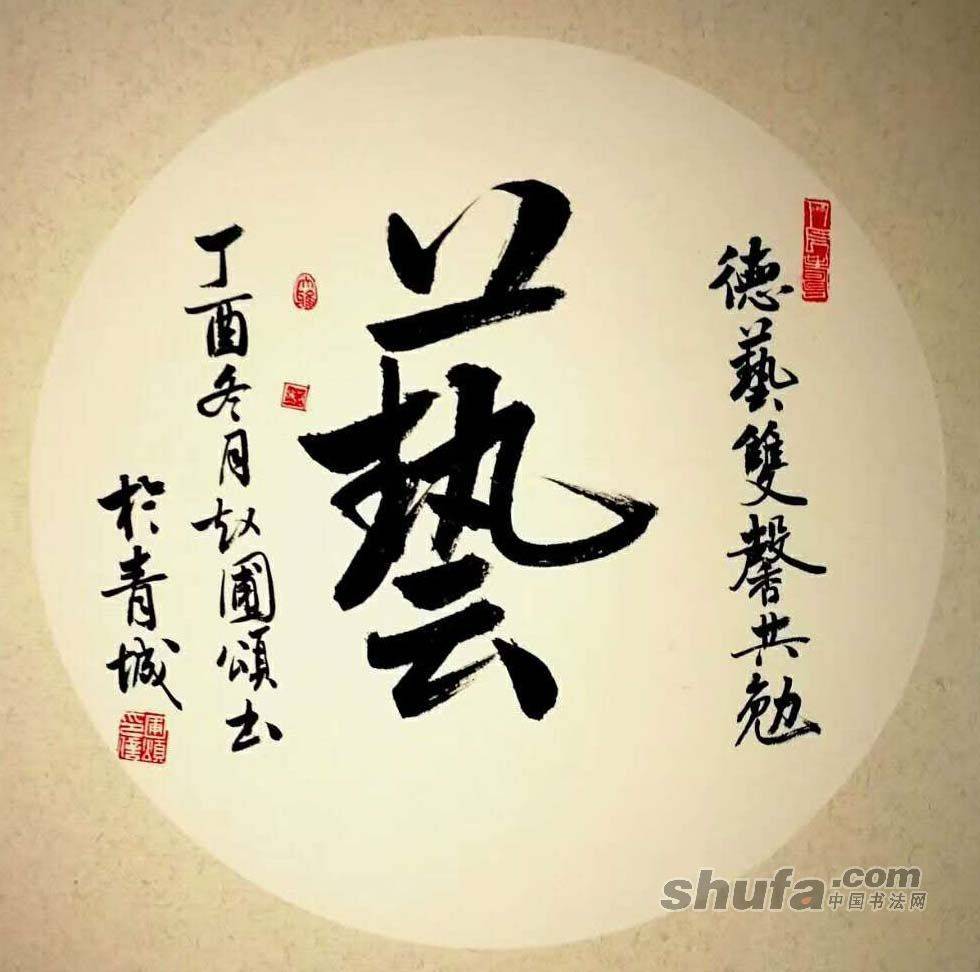 德藝雙馨共勉
藝
丁酉冬月赵圃頌書
於青城
shufa.com
中国书法网